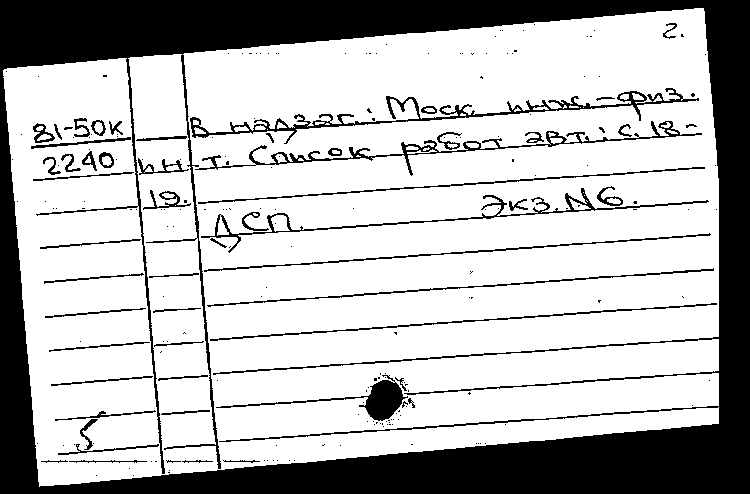 2.
81-50к В надзаг.: Моск. инж.-физ.
2240 ин-т. Список работ авт.: с. 18-
19.
ДСП. Экз. N6.
5